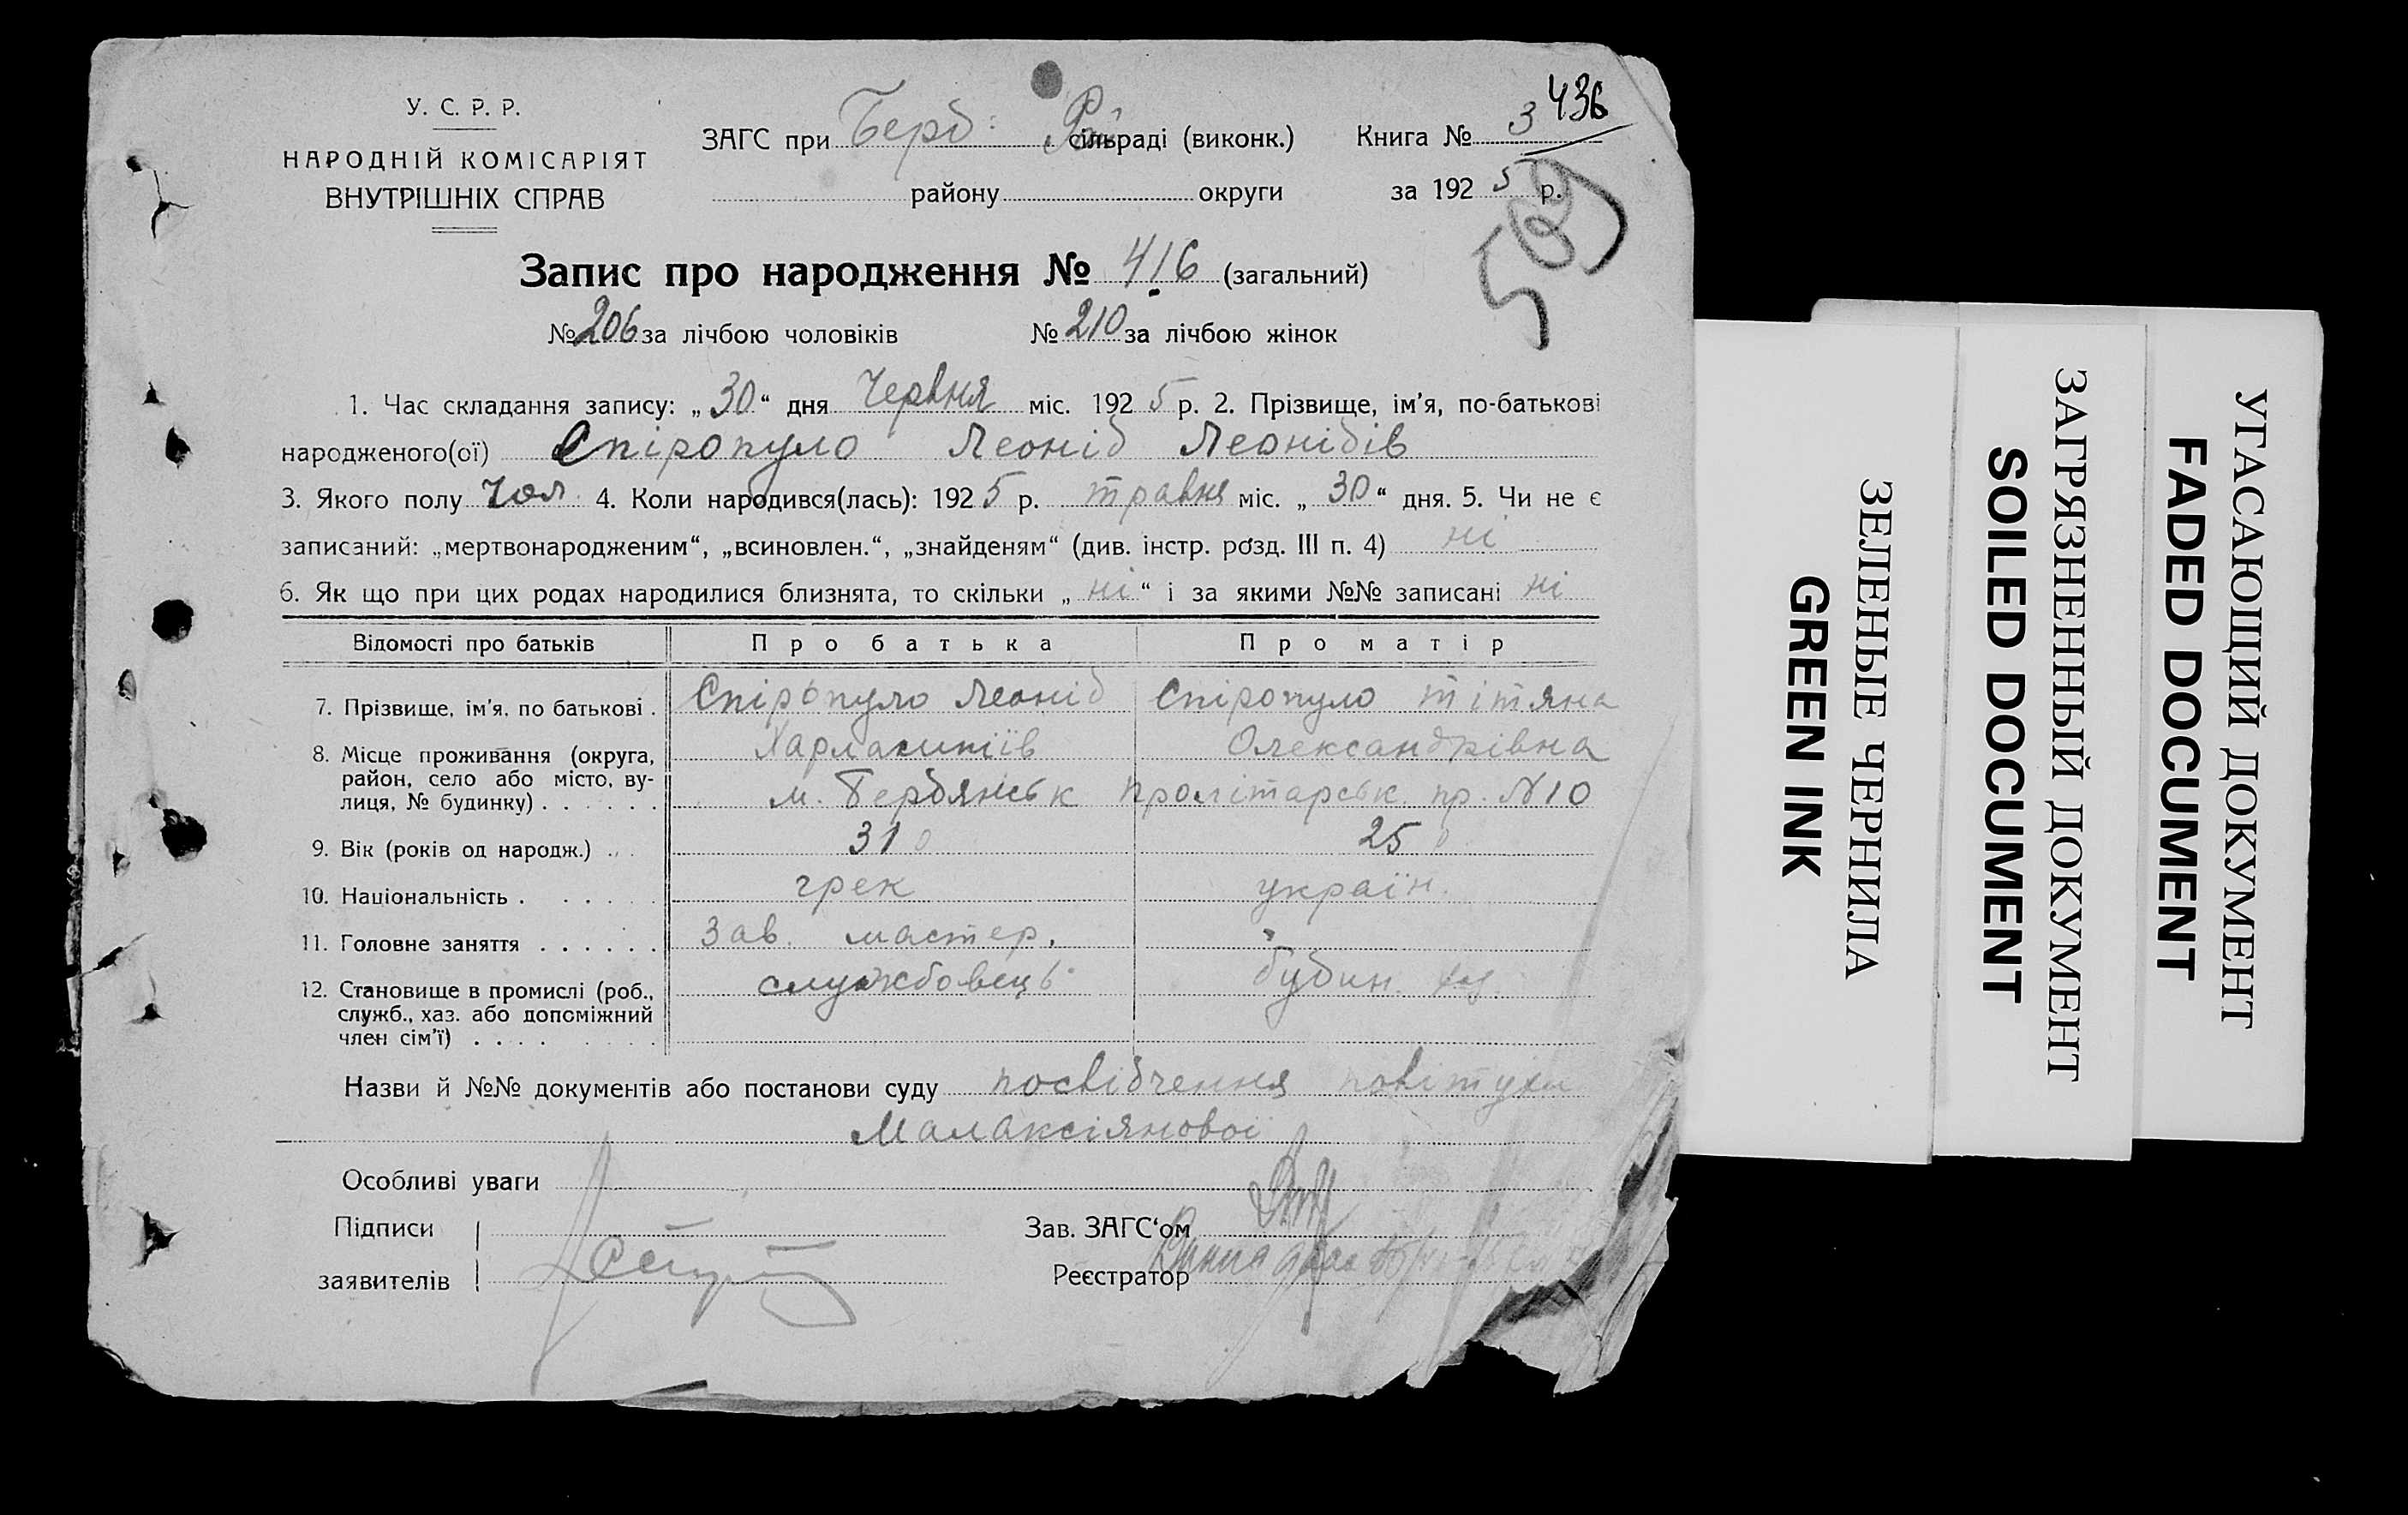 У. С. Р. Р.
НАРОДНІЙ КОМІСАРІЯТ
ВНУТРІШНІХ СПРАВ
ЗАГС при Берд: Рай сільраді (виконк.)
району округи
Книга № 3 436
за 192 5 р.
509
Запис про народження № 416 (загальний)
№ 206 за лічбою чоловіків № 210 за лічбою жінок
1. Час складання запису: „ 30 “ дня Червня міс. 192 5 р. 2. Прізвище, ім’я, по-батькові
народженого(ої) Спіропуло Леонід Леонідів
3. Якого полу Чол. 4. Коли народився(лась): 192 5 р. травня міс. „ 30 “ дня. 5. Чи не є
записаний: „мертвонародженим“, „всиновлен.“, „знайденям“ (див. інстр. розд. III п. 4) ні
6. Як що при цих родах народилися близнята, то скільки „ ні “ і за якими №№ записані ні
Відомості про батьків Про батька Про матір
7. Прізвище, ім’я, по батькові . Спіропуло Леонід Спіропуло Тітяна
Харлампіїв Олександрівна
8. Місце проживання (округа,
район, село або місто, ву-
лиця, № будинку) . . . . . . м. Бердянськ Пролітарськ. пр. №10
9. Вік (років од народж.) . . . 31 25
10. Національність . . . . . . грек україн.
11. Головне заняття . . . . . . Зав. мастер.
12. Становище в промислі (роб.,
служб., хаз. або допоміжний
член сім’ї) . . . . службовець будин.
Назви й №№ документів або постанови суду посвідчення повітухи
Малаксіянової
Особливі уваги
Підписи
заявителів
Зав. ЗАГС‘ом
Реєстратор
ЗЕЛЕНЫЕ ЧЕРНИЛА
GREEN INK
ЗАГРЯЗНЕННЫЙ ДОКУМЕНТ
SOILED DOCUMENT
УГАСАЮЩИЙ ДОКУМЕНТ
FADED DOCUMENT